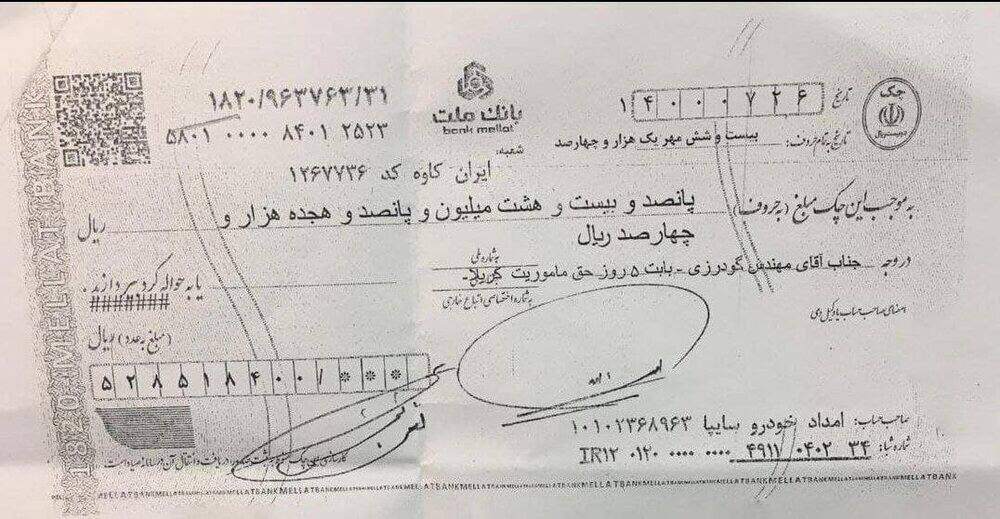 چک
تاریخ ۱۴۰۰۰۷۲۶
تاریخ به تمام حروف: بیست و شش مهر یک هزار و چهارصد
بانک ملت
bank mellat
۱۸۲۰/۹۶۳۷۶۳/۳۱
۵۸۰۱ ۰۰۰۰ ۸۴۰۱ ۲۵۲۳
شعبه:
ایران کاوه کد ۱۲۶۷۷۳۶
به موجب این چک مبلغ (به حروف) پانصد و بیست و هشت میلیون و پانصد و هجده هزار و ریال
چهارصد ریال
در وجه جناب آقای مهندس گودرزی - بابت ۵ روز حق ماموریت کربلا-
به شماره ملی
یا به حواله کرد بپردازند.
#######
به شماره اختصاصی اتباع خارجی
امضای صاحب حساب یا وکیل وی
(مبلغ به عدد) ریال
۵۲۸۵۱۸۴۰۰/***
صاحب حساب: امداد خودرو سایپا ۱۰۱۰۲۳۶۸۹۶۳
شماره شبا: IR۱۲ ۰۱۲۰ ۰۰۰۰ ۰۰۰۰ ۴۹۱۱ ۰۴۰۲ ۳۴
1820 MELLAT BANK
MELLATBANKMELLATBANKMELLATBANK